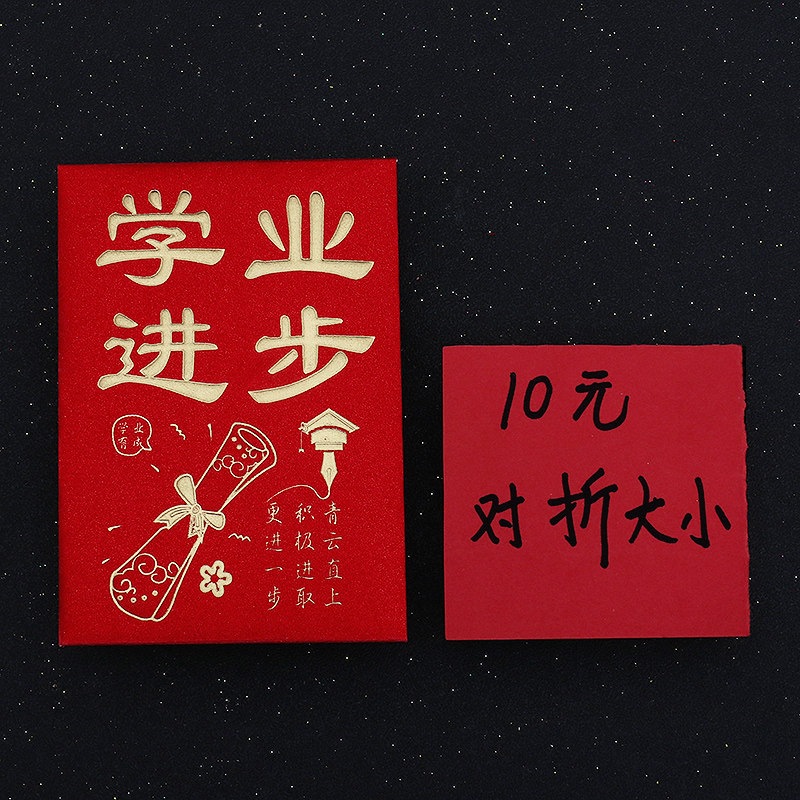 学业
进步
学业
有成
青云直上
积极进取
更进一步
10元
对折大小